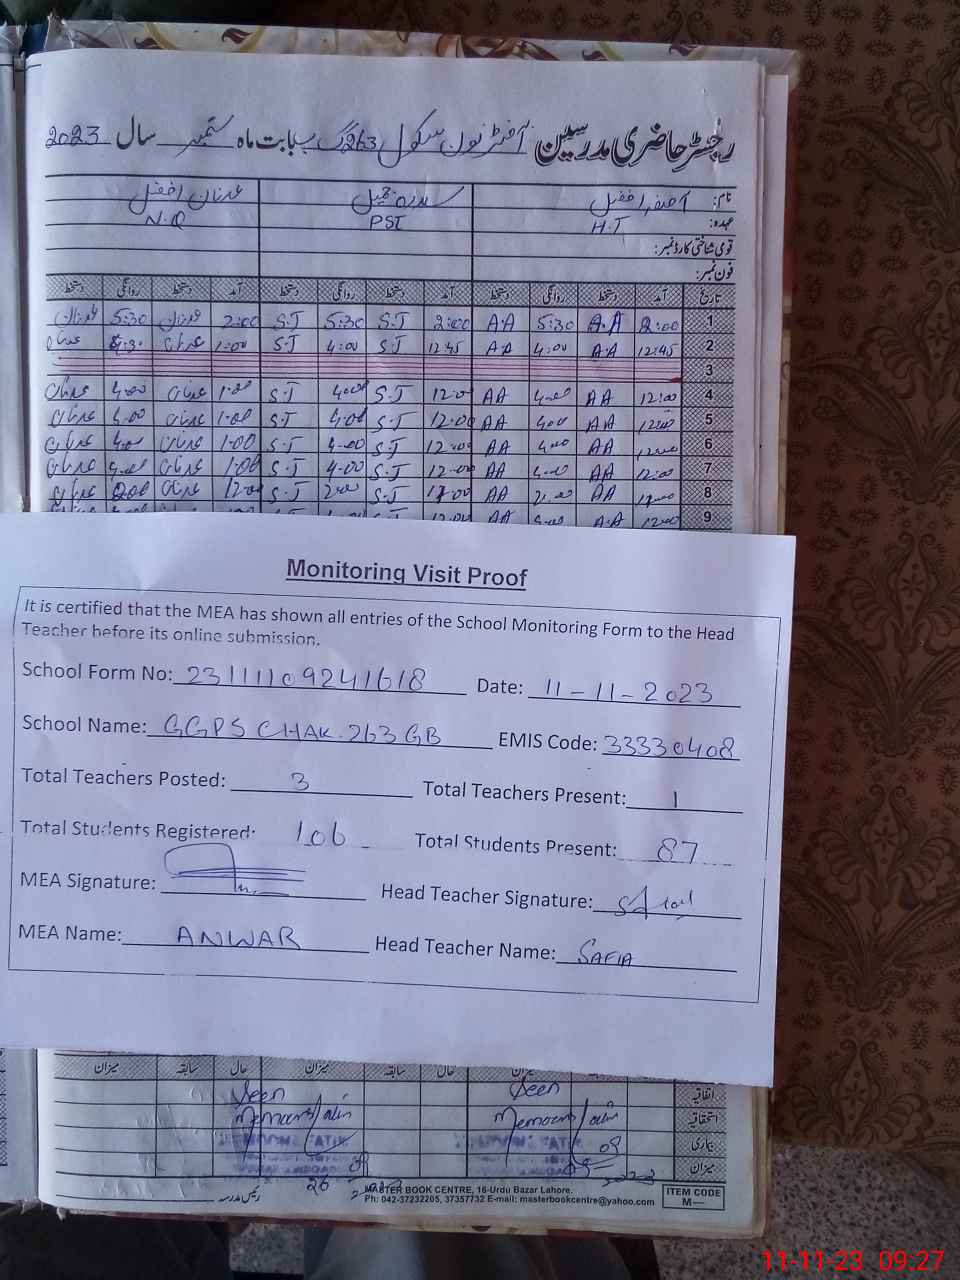 رجسٹر حاضری مدرسین آفٹر نون سکول 263 گ ب بابت ماہ ستمبر سال 2023
نام: آصفہ افضل سدرہ جمیل عدنان افضل
عہدہ: H.T PST N.Q
قومی شناختی کارڈ نمبر:
فون نمبر:
تاریخ آمد دستخط روانگی دستخط آمد دستخط روانگی دستخط آمد دستخط روانگی دستخط
1 2:00 A.A 5:30 A.A 2:00 S.J 5:30 S.J 2:00 عدنان 5:30 عدنان
2 12:45 A.A 4:00 A.A 12:45 S.J 4:00 S.J 1:00 عدنان 4:30 عدنان
3
4 12:00 AA 4:00 AA 12:00 S.J 4:00 S.J 1:00 عدنان 4:00 عدنان
5 12:00 AA 4:00 AA 12:00 S.J 4:00 S.J 1:00 عدنان 4:00 عدنان
6 12:00 AA 4:00 AA 12:00 S.J 4:00 S.J 1:00 عدنان 4:00 عدنان
7 12:00 AA 4:00 AA 12:00 S.J 4:00 S.J 1:00 عدنان 4:00 عدنان
8 AA AA S.J 2:00 S.J 12:00 عدنان 2:00 عدنان
9 12:00 A.A 4:00 AA 12:00 S.J
Monitoring Visit Proof
It is certified that the MEA has shown all entries of the School Monitoring Form to the Head
Teacher before its online submission.
School Form No: 23111109241618 Date: 11-11-2023
School Name: GGPS CHAK.263 GB EMIS Code: 33330408
Total Teachers Posted: 3 Total Teachers Present: 1
Total Students Registered: 106 Total Students Present: 87
MEA Signature: Head Teacher Signature:
MEA Name: ANWAR Head Teacher Name: SAFIA
میزان سابقہ حال میزان سابقہ حال
اتفاقیہ Seen Seen
استحقاقیہ
بیماری
میزان
رئیس مدرسہ 26
MASTER BOOK CENTRE, 16-Urdu Bazar Lahore.
Ph: 042-37232205, 37357732 E-mail: masterbookcentre@yahoo.com
ITEM CODE
M—
11-11-23 09:27